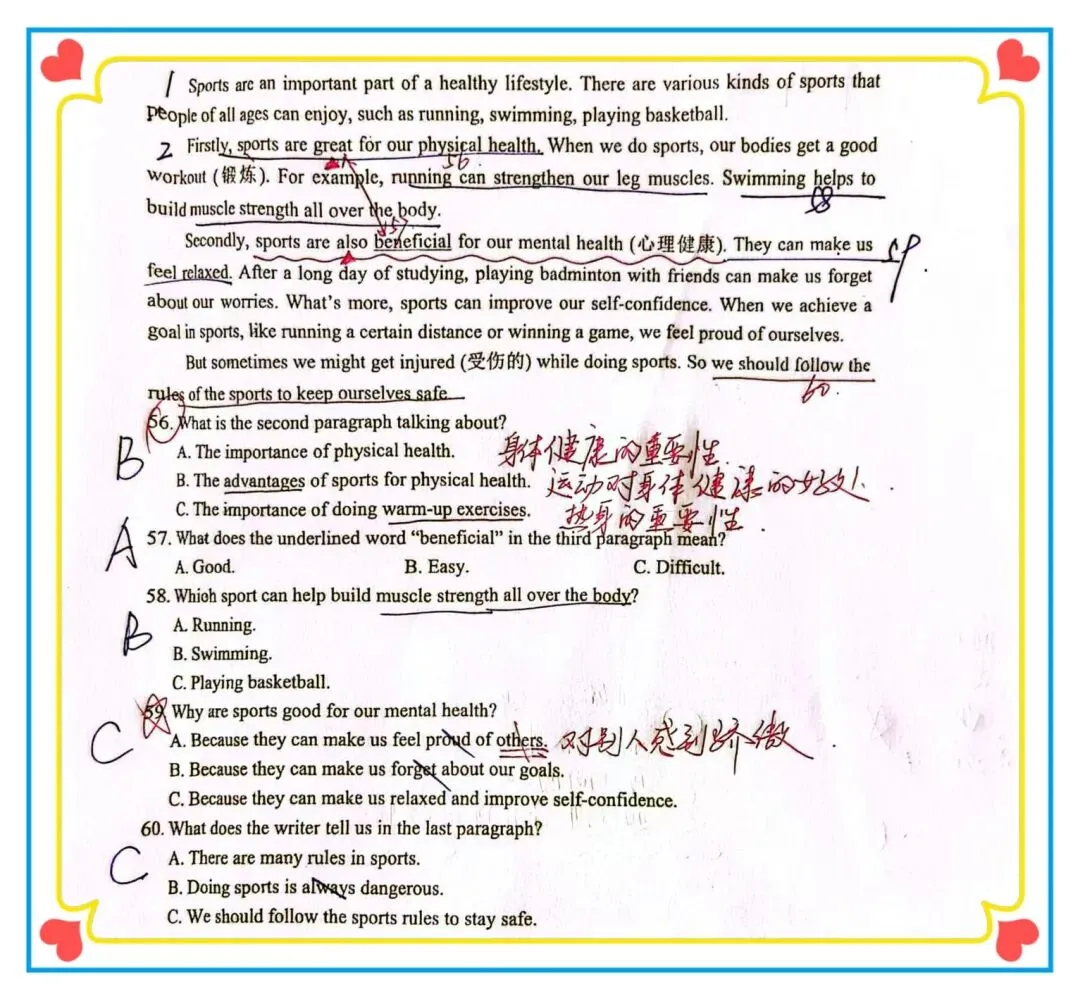 1 Sports are an important part of a healthy lifestyle. There are various kinds of sports that
People of all ages can enjoy, such as running, swimming, playing basketball.
2 Firstly, sports are great for our physical health. When we do sports, our bodies get a good
56.
workout (锻炼). For example, running can strengthen our leg muscles. Swimming helps to
58
build muscle strength all over the body.
57
Secondly, sports are also beneficial for our mental health (心理健康). They can make us
59.
feel relaxed. After a long day of studying, playing badminton with friends can make us forget
about our worries. What's more, sports can improve our self-confidence. When we achieve a
goal in sports, like running a certain distance or winning a game, we feel proud of ourselves.
But sometimes we might get injured (受伤的) while doing sports. So we should follow the
60.
rules of the sports to keep ourselves safe
56. What is the second paragraph talking about?
B
A. The importance of physical health. 身体健康的重要性.
B. The advantages of sports for physical health. 运动对身体健康的好处.
C. The importance of doing warm-up exercises. 热身的重要性.
A
57. What does the underlined word “beneficial” in the third paragraph mean?
A. Good. B. Easy. C. Difficult.
58. Which sport can help build muscle strength all over the body?
B
A. Running.
B. Swimming.
C. Playing basketball.
59. Why are sports good for our mental health?
C
A. Because they can make us feel proud of others. 对别人感到骄傲.
B. Because they can make us forget about our goals.
C. Because they can make us relaxed and improve self-confidence.
60. What does the writer tell us in the last paragraph?
C
A. There are many rules in sports.
B. Doing sports is always dangerous.
C. We should follow the sports rules to stay safe.